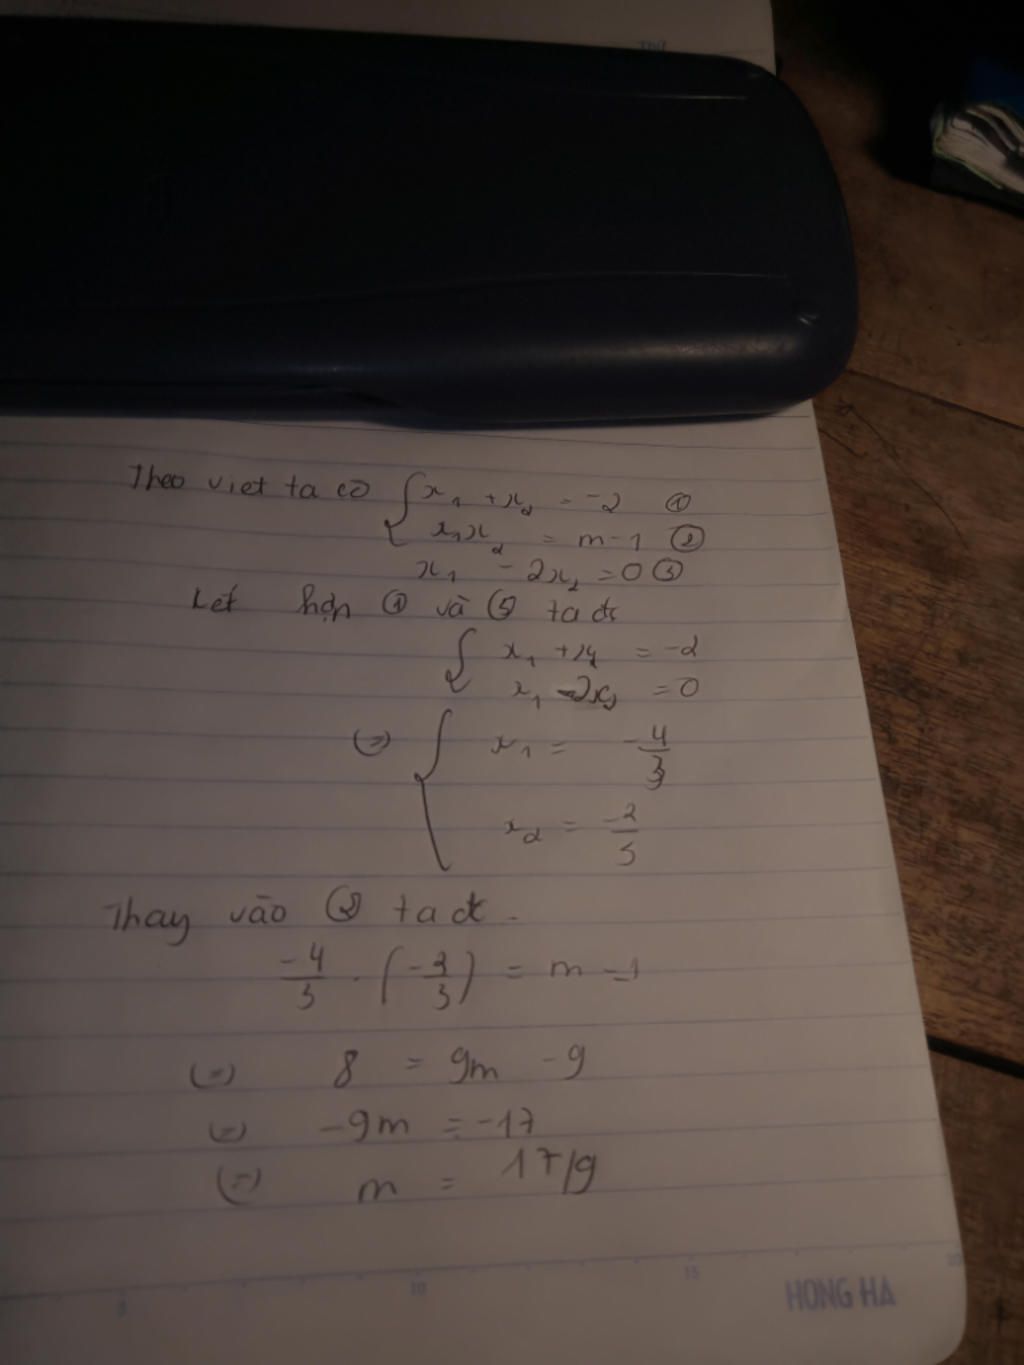 Theo viet ta có { x₁ + x₂ = -2 ①
x₁x₂ = m-1 ②
x₁ - 2x₂ = 0 ③
Kết hợp ① và ③ ta đc
{ x₁ + x₂ = -2
x₁ - 2x₂ = 0
(=) { x₁ = -4/3
x₂ = -2/3
Thay vào ② ta đc.
-4/3 . (-2/3) = m - 1
(=) 8 = 9m - 9
(=) -9m = -17
(=) m = 17/9
5 10 15 20
HONG HA